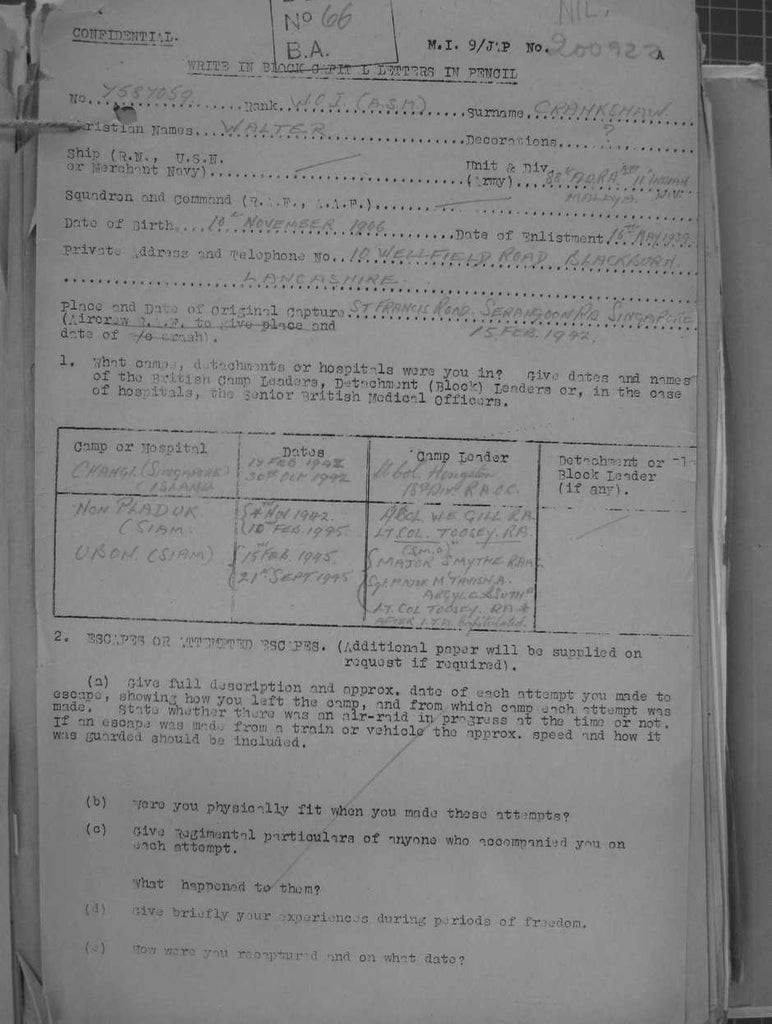 NIL.
No 66
B.A.
CONFIDENTIAL.
M.I. 9/JAP No. 200922 A
WRITE IN BLOCK CAPITAL LETTERS IN PENCIL
No. 7587059 Rank. W.O.I. (A.S.M) Surname. CRANKSHAW
Christian Names... WALTER Decorations. ?
Ship (R.N., U.S.N. Unit & Div.
or Merchant Navy) (Army) 88th 11th INDIAN DIV
MALAYA.
Squadron and Command (R.A.F., A.A.F.)
Date of Birth... 10th NOVEMBER 1906 Date of Enlistment 1939
Private Address and Telephone No. 10, WELLFIELD ROAD BLACKBURN.
LANCASHIRE.
Place and Date of Original Capture. ST FRANCIS ROAD. SERANGOON RD SINGAPORE
(Aircrew R.A.F. to give place and
date of a/c crash). 15 FEB. 1942.
1. What camps, detachments or hospitals were you in? Give dates and names
of the British Camp Leaders, Detachment (Block) Leaders or, in the case
of hospitals, the Senior British Medical Officers.
Camp or Hospital Dates Camp Leader Detachment or
Block Leader
(if any).
CHANGI (SINGAPORE) 17 FEB 1942
ISLAND 30th OCT 1942 18th Div R.A.O.C.
NON PLADUK 4th NOV 1942. W.E. GILL RA
(SIAM. 10th FEB. 1945. LT. COL. TOOSEY. RA.
(S.M.O)
UBON (SIAM) 15 FEB. 1945 MAJOR SMYTHE RAMC
21st SEPT 1945 Sgt. MAJOR McTAVISH A.
ARGYLE & SUTHD
LT. COL TOOSEY. RA
AFTER I.J.A. Capitulated.
2. ESCAPES OR ATTEMPTED ESCAPES. (Additional paper will be supplied on
request if required).
(a) Give full description and approx. date of each attempt you made to
escape, showing how you left the camp, and from which camp each attempt was
made. State whether there was an air-raid in progress at the time or not.
If an escape was made from a train or vehicle the approx. speed and how it
was guarded should be included.
(b) Were you physically fit when you made these attempts?
(c) Give Regimental particulars of anyone who accompanied you on
each attempt.
What happened to them?
(d) Give briefly your experiences during periods of freedom.
(e) How were you recaptured and on what date?